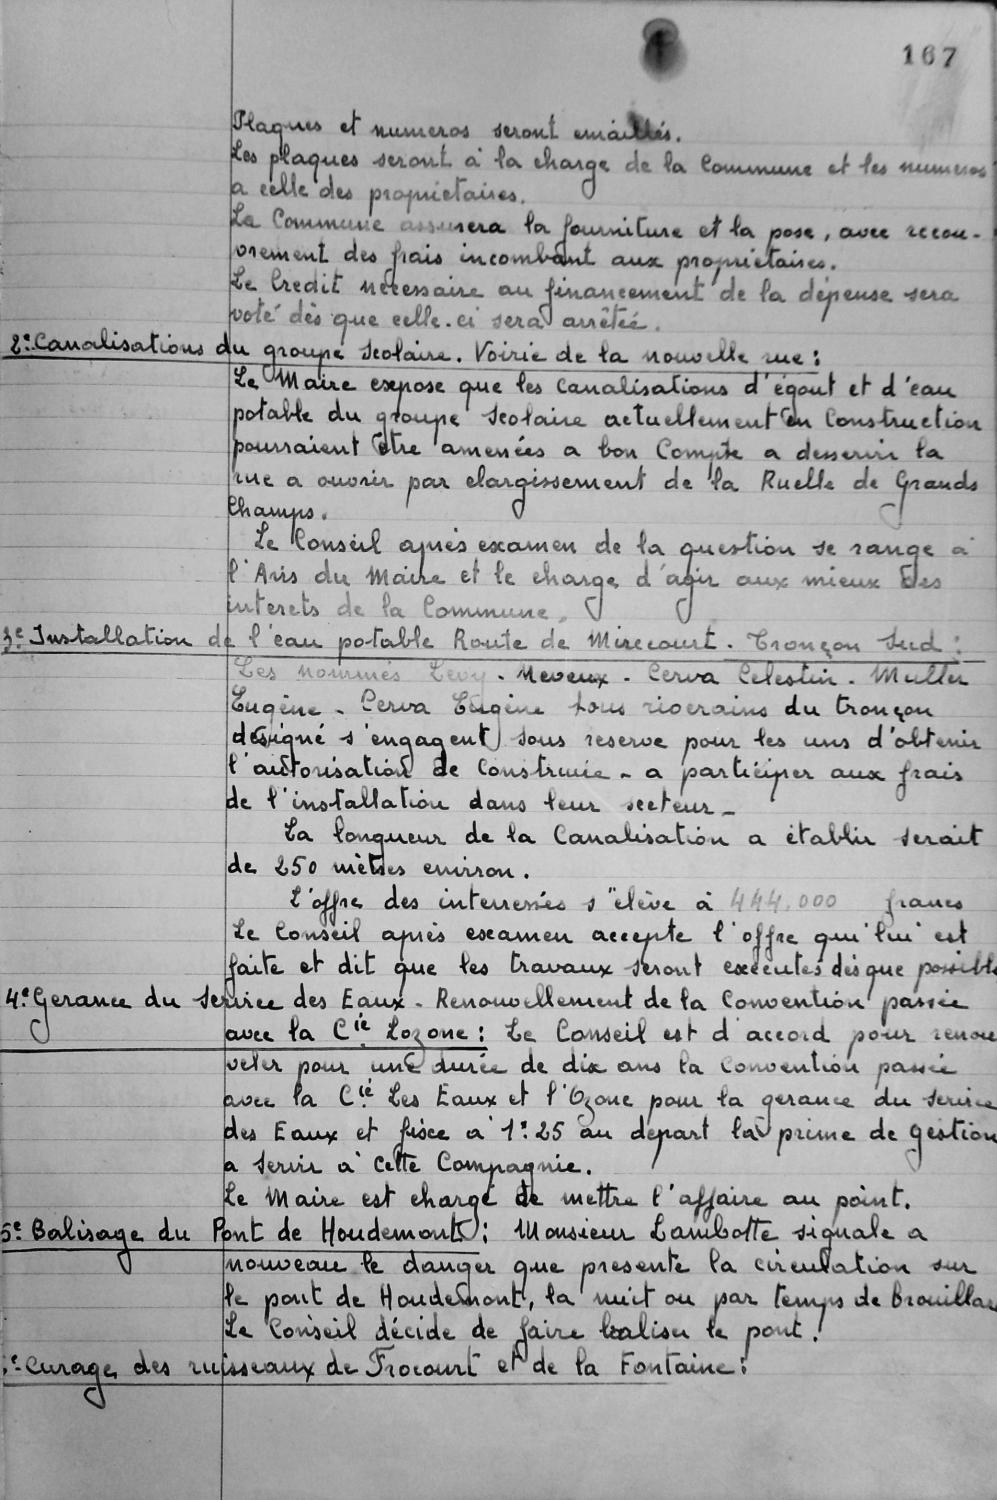 167
Plaques et numeros seront emaillés.
Les plaques seront à la charge de la Commune et les numeros
a celle des propriétaires.
La Commune assurera la fourniture et la pose, avec recou-
vrement des frais incombant aux propriétaires.
Le Credit nécessaire au financement de la dépense sera
voté dès que celle-ci sera arrêtée.
2° Canalisations du groupe Scolaire. Voirie de la nouvelle rue :
Le Maire expose que les Canalisations d'égout et d'eau
potable du groupe Scolaire actuellement en Construction
pourraient être amenées a bon Compte a desservir la
rue a ouvrir par elargissement de la Ruelle de Grands
Champs.
Le Conseil après examen de la question se range à
l'Avis du Maire et le charge d'agir aux mieux des
interets de la Commune.
3° Installation de l'eau potable Route de Mirecourt. Tronçon Sud :
Les nommés Levy - Neveux - Cerva Celestin - Muller
Eugène - Cerva Eugène tous riverains du tronçon
désigné s'engagent sous reserve pour les uns d'obtenir
l'autorisation de Construire - a participer aux frais
de l'installation dans leur secteur -
La longueur de la Canalisation a établir serait
de 250 mètres environ.
L'offre des interressés s'elève à 444.000 francs
Le Conseil après examen accepte l'offre qui lui est
faite et dit que les travaux seront executés dès que possible
4° Gerance du Service des Eaux - Renouvellement de la Convention passée
avec la Cie Lozone : Le Conseil est d'accord pour renou
veler pour une durée de dix ans la Convention passée
avec la Cie Les Eaux et l'Ozone pour la gerance du Service
des Eaux et fixée à 1.25 au départ la prime de gestion
a servir à cette Compagnie.
Le Maire est chargé de mettre l'affaire au point.
5° Balisage du Pont de Houdemont : Monsieur Lambotte signale a
nouveau le danger que presente la circulation sur
le pont de Houdemont, la nuit ou par temps de brouillard
Le Conseil décide de faire baliser le pont.
Curage des ruisseaux de Frocourt et de la Fontaine :